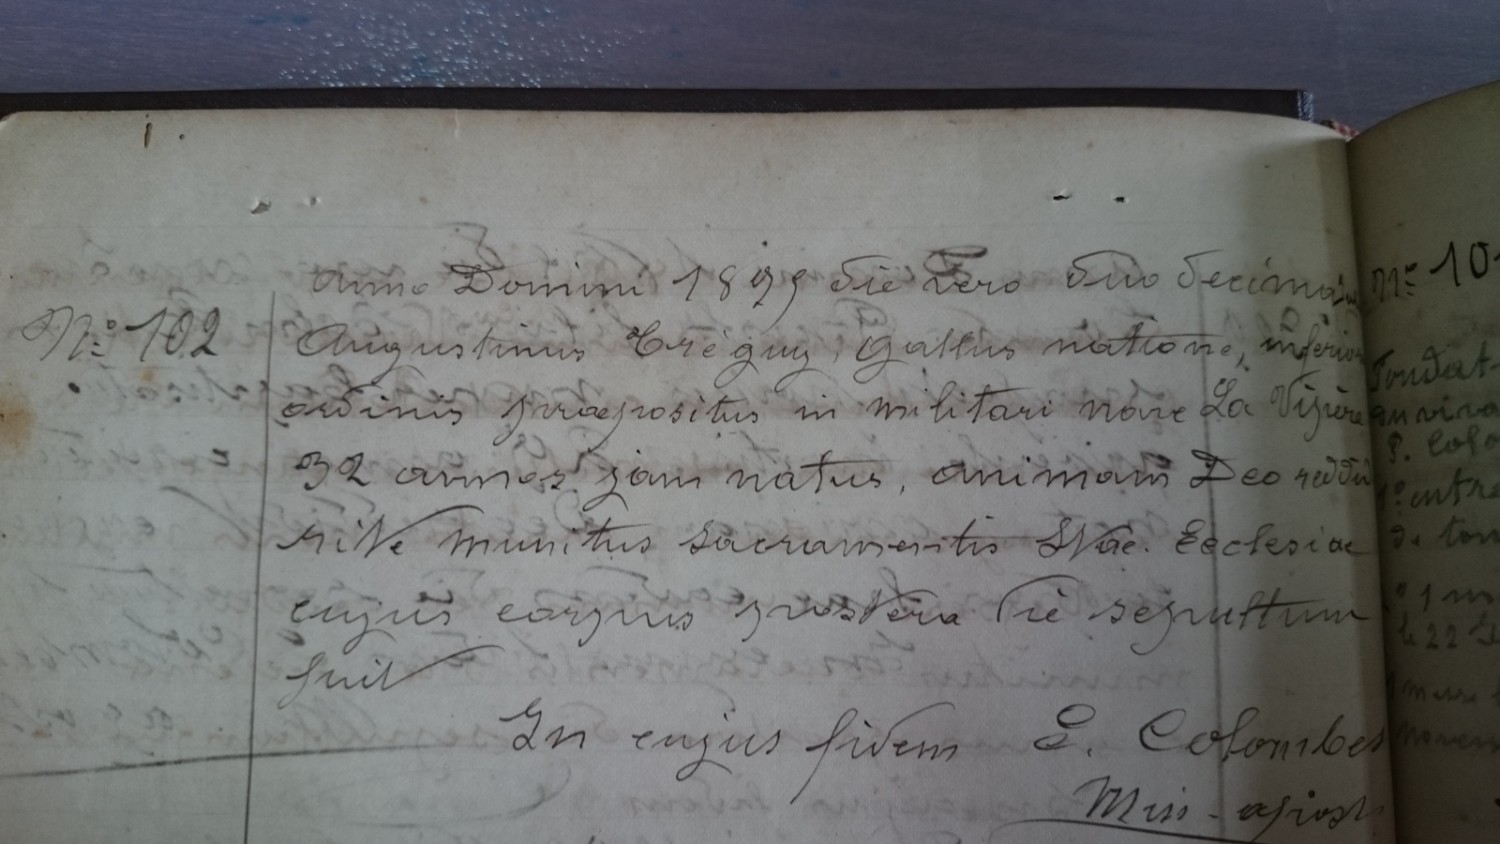 Anno Domini 1899 die vero duo decima
N° 102
Augustinus Tréguy, Gallus natione, inferioris
ordinis praepositus in militari nave La Vipère
32 annos jam natus, animam Deo reddidit
rite munitus sacramentis Stae. Ecclesiae
cujus corpus postera die sepultum
fuit
In cujus fidem E. Colombet
Miss. apost.
N° 10